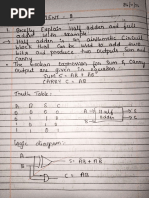 ASSIGNMENT - B
1 Briefly Explain half adder and full
adder with example
→ Half adder is an arithmetic circuit
block that can be used to add
bits and produce two outputs Sum and
Carry.
→ The boolean Expression for Sum & Carry
Output are given in equation
SUM S = AB + AB
CARRY C = AB
Truth Table:
A B S C
0 0 0 0
Half
adder
Logic diagram:
A
B
C = AB